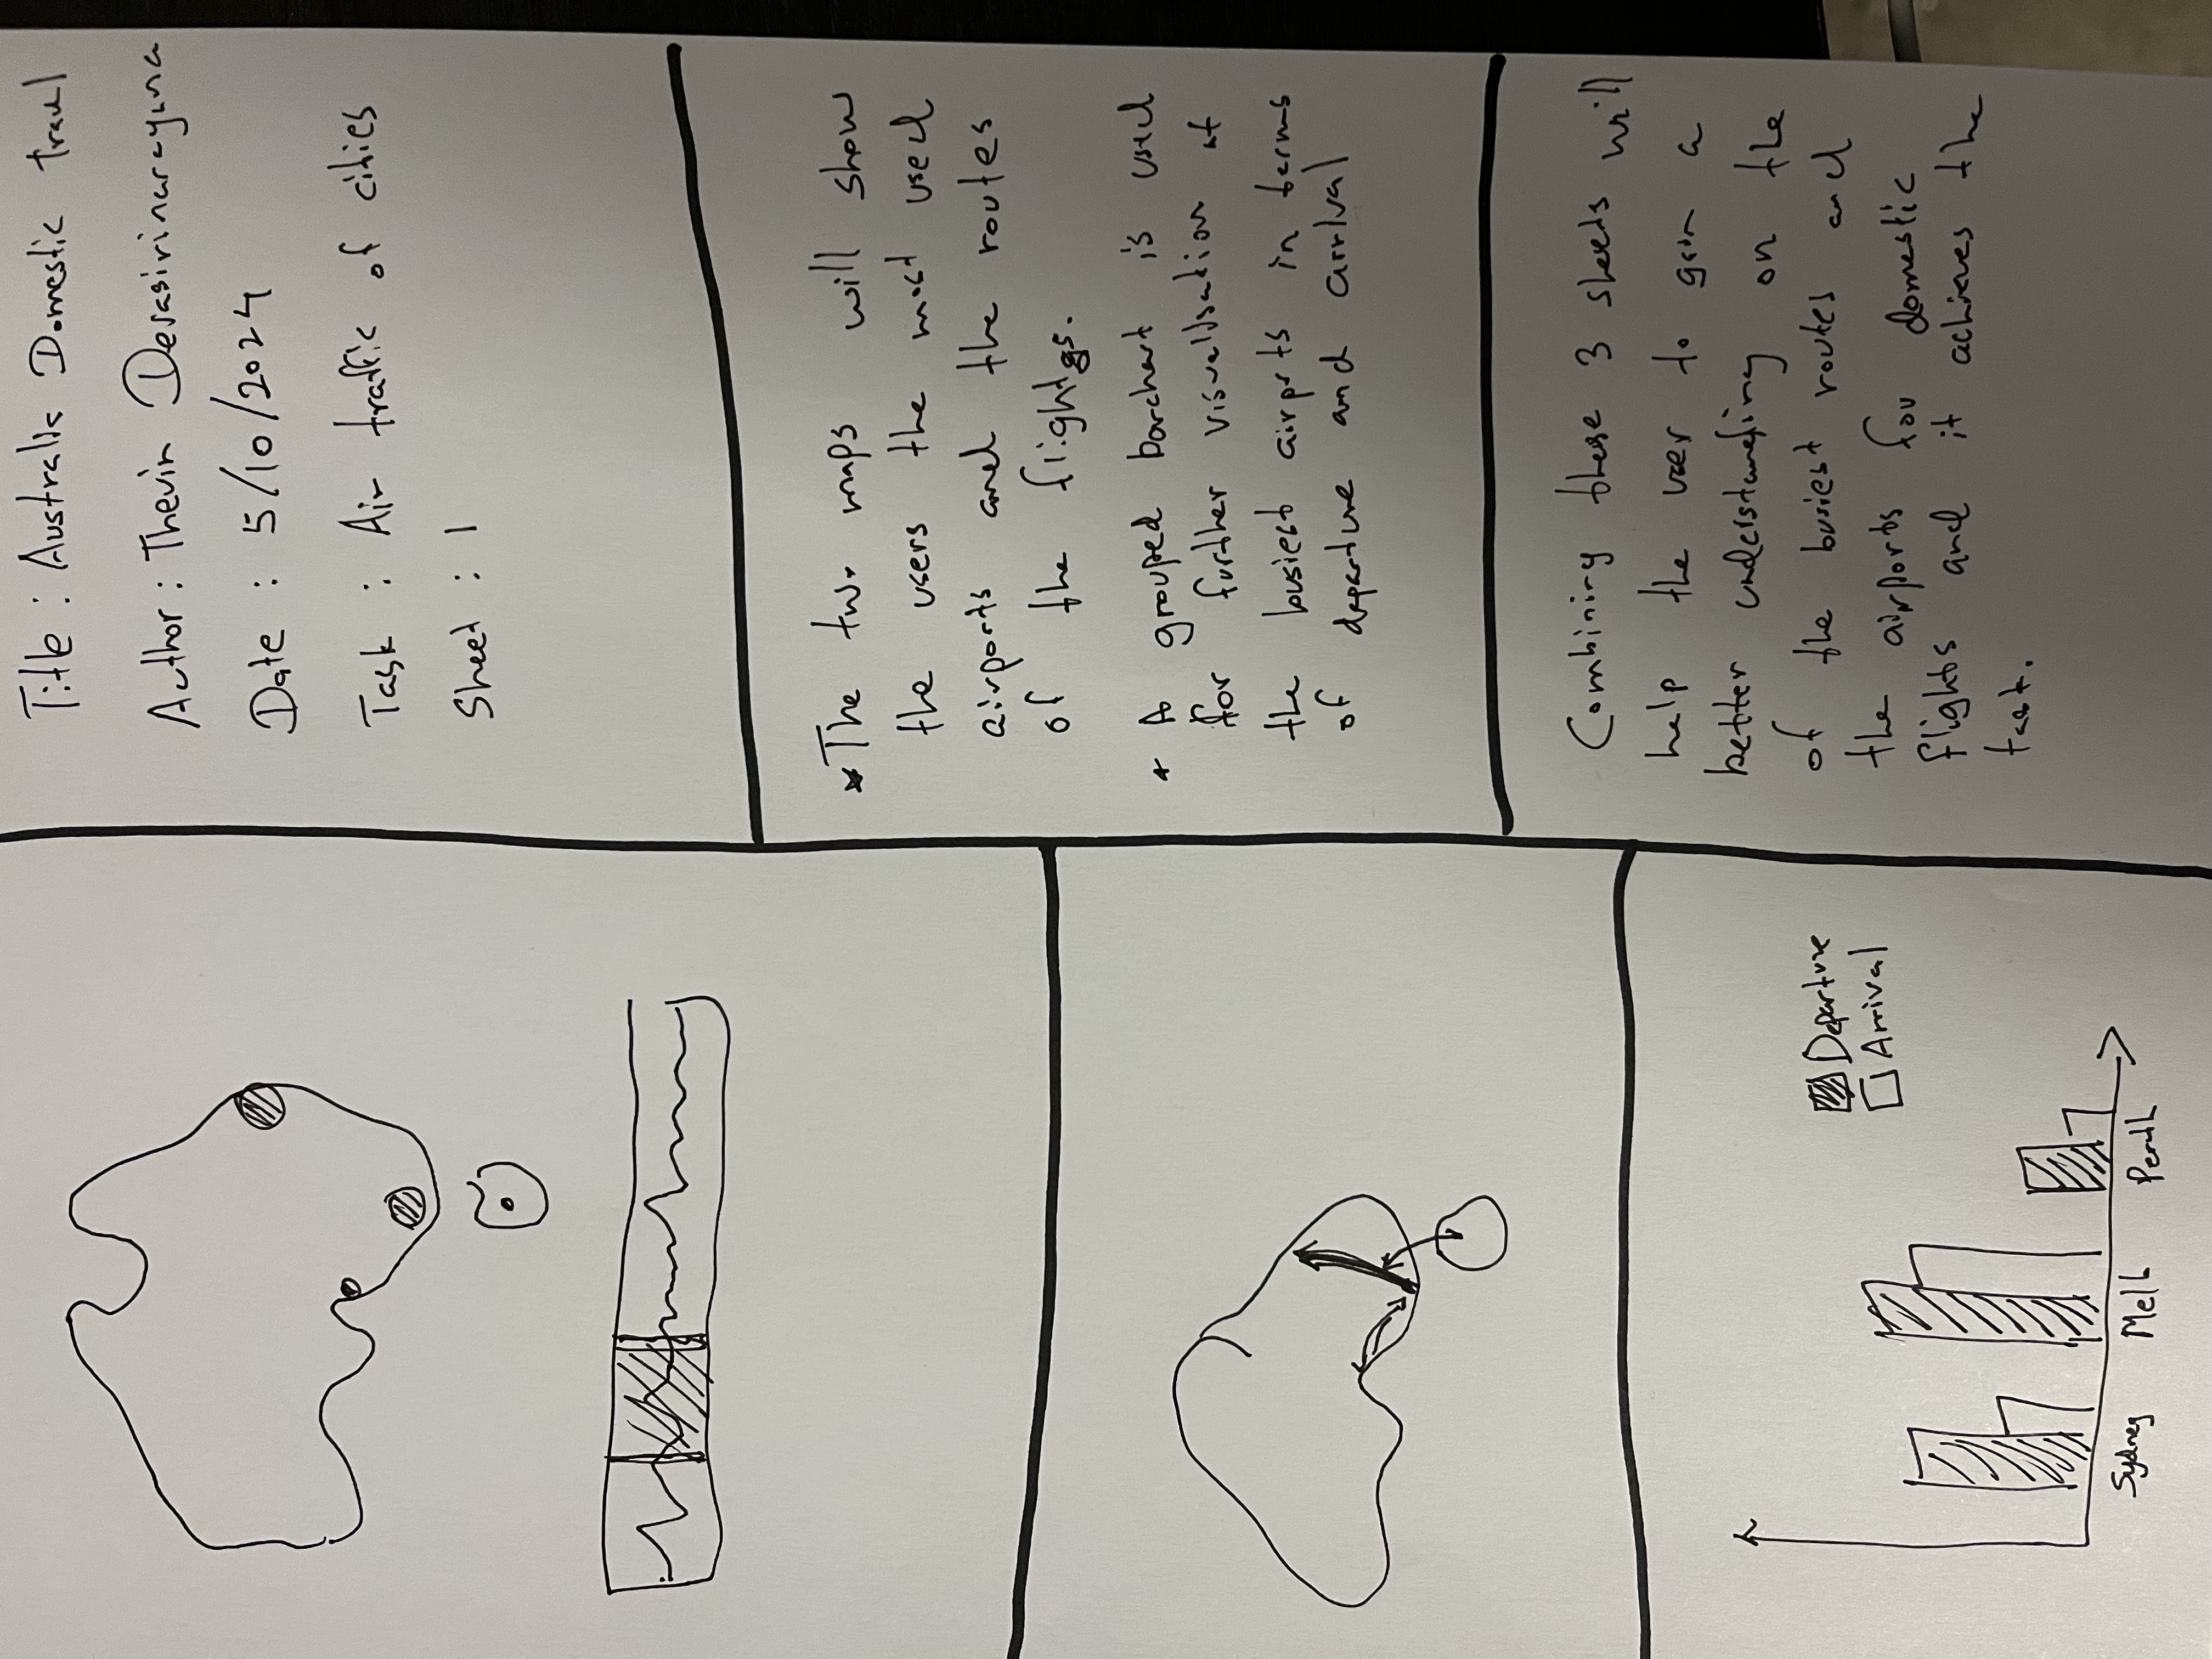 Title : Australia Domestic travel
Author : Thevin Desasirinarayana
Date : 5/10/2024
Task : Air traffic of cities
Sheet : 1
The two maps will show
the users the most used
airports and the routes
of the flights.
A grouped barchart is used
for further visualisation of
the busiest airprts in terms
of departure and arrival
Combining these 3 sheets will
help the user to gain a
better understanding on the
of the busiest routes and
the airports for domestic
flights and it achieves the
task.
Departure
Arrival
Sydney
Melb
Perth